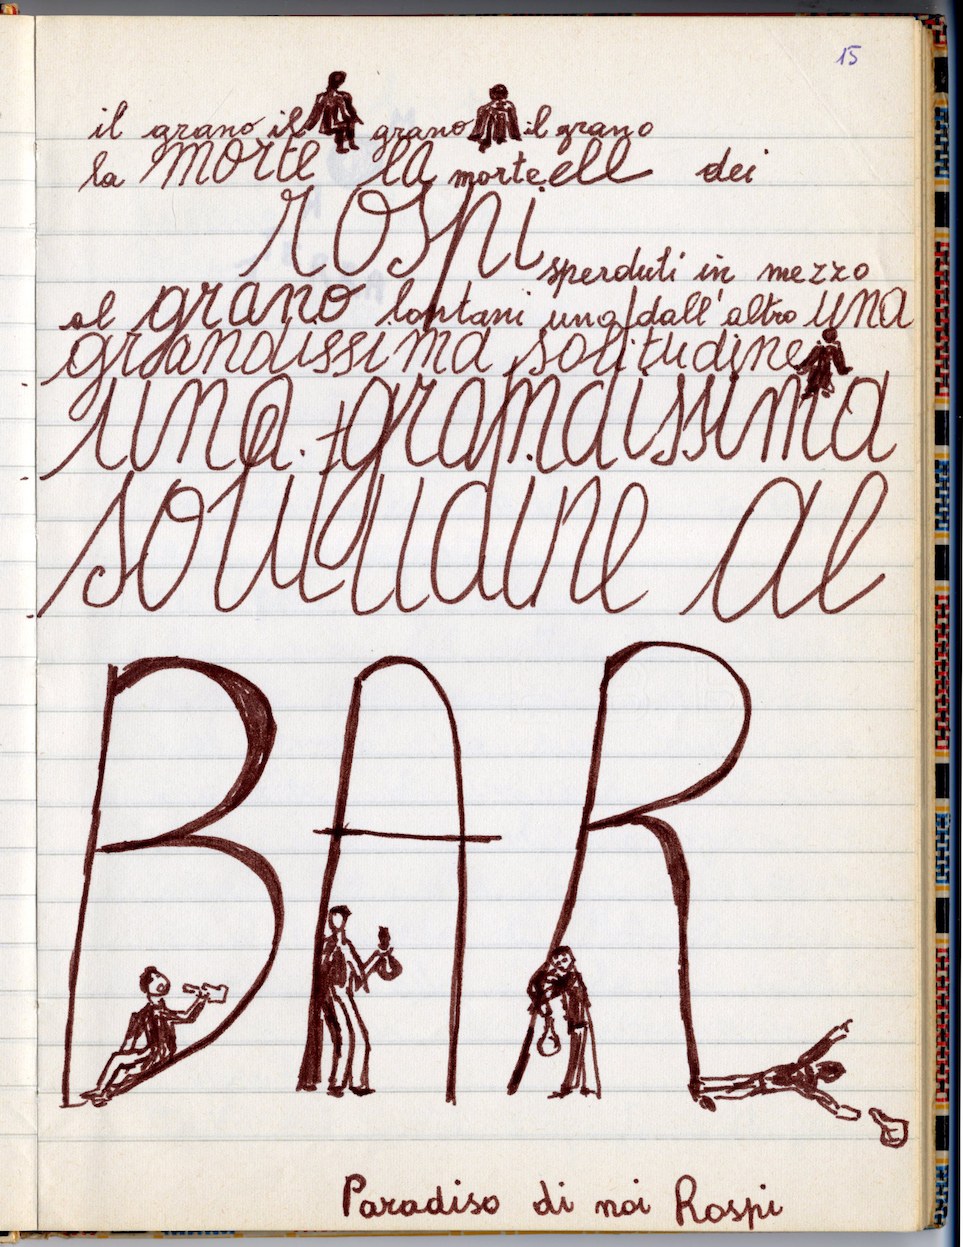 15
il grano il grano il grano
la morte la morte ell dei
rospi
sperduti in mezzo
al grano lontani uno dall'altro una
grandissima solitudine
una grandissima
solitudine al
BAR
Paradiso di noi Rospi